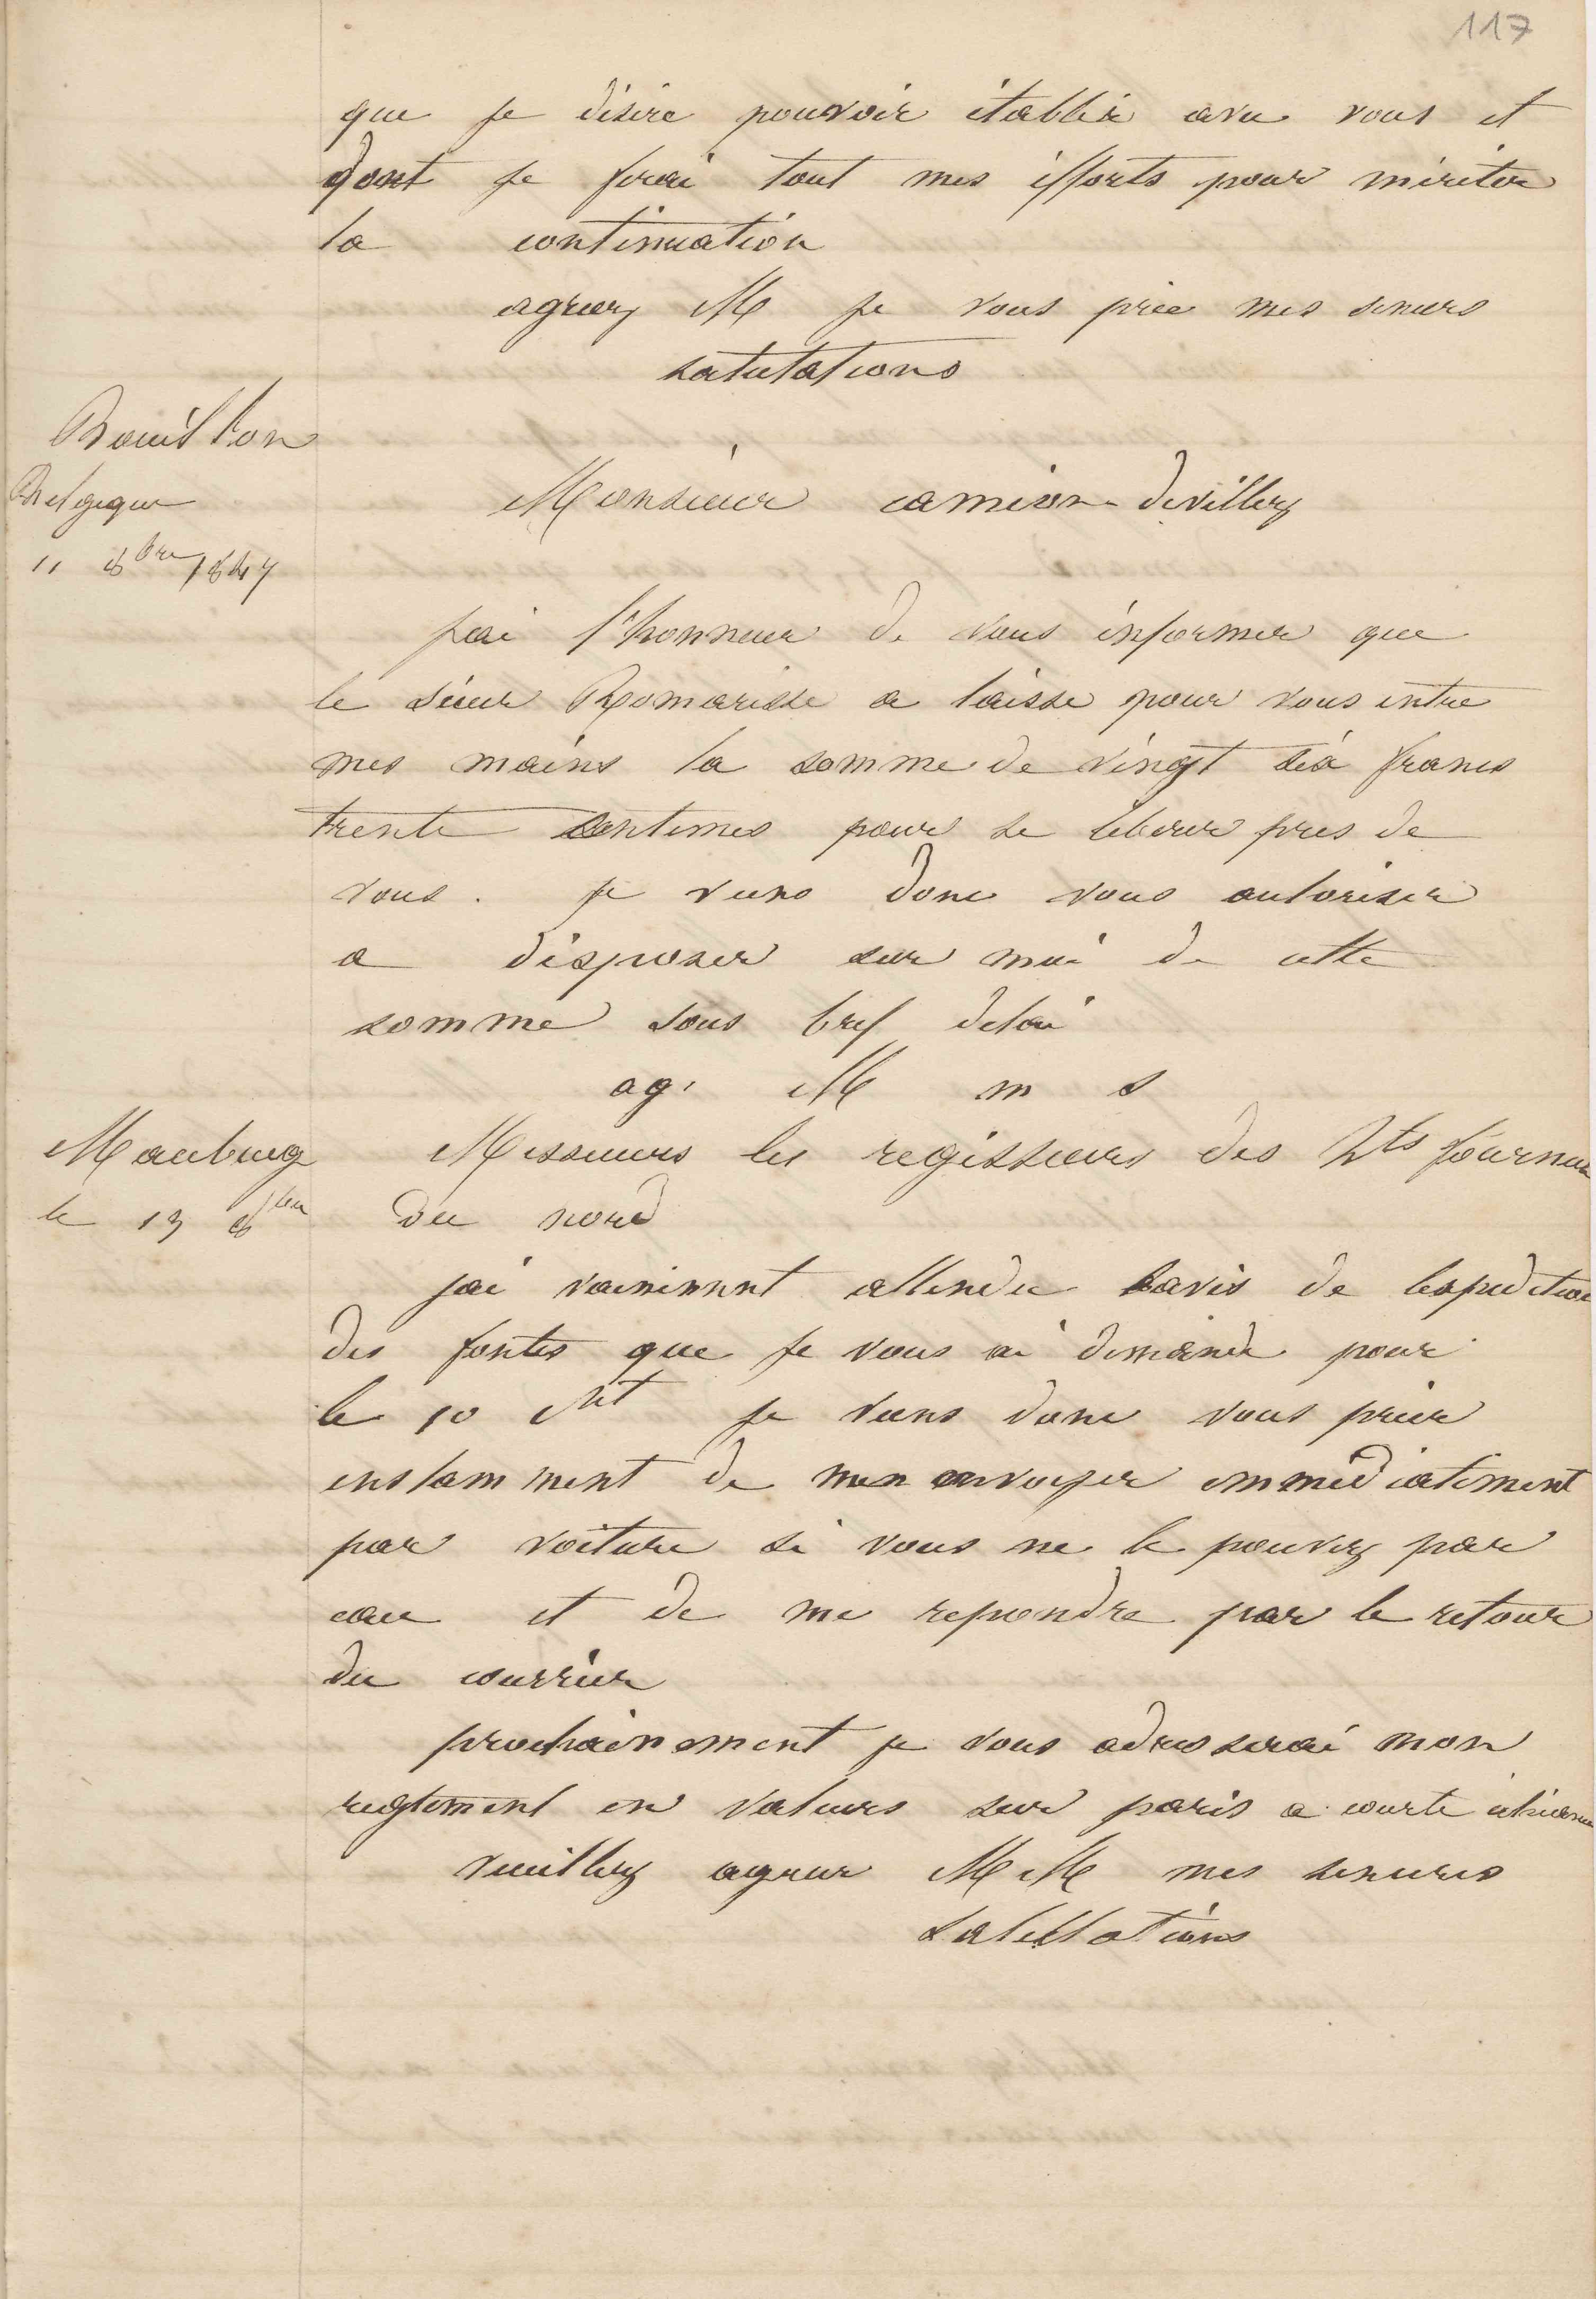 117
que je désire pouvoir établir avec vous et
dont je ferai tout mes efforts pour mériter
la continuation
agréez M je vous prie mes sinceres
salutations
Bouillon
Belgique
11 8bre 1847
Monsieur camion devillez
jai l'honneur de vous informer que
le sieur Romarisse a laisse pour vous entre
mes mains la somme de vingt six francs
trente centimes pour se liberer pres de
vous. je viens donc vous autoriser
a disposer sur moi de cette
somme sous bref delai
ag. M m s
Maubeug
le 13 8bre
Messieurs les regisseurs des hts fourneaux
du nord
jai vainement attendu lavis de lexpedition
des fontes que je vous ai demandé pour
le 10 ct je viens donc vous prier
instamment de men envoyer immédiatement
par voiture si vous ne le pouvez par
eau et de me repondre par le retour
du courrier
prochainement je vous adresserai mon
reglement en valeurs sur paris a courte écheance
veuillez agreer MM mes sinceres
salutations